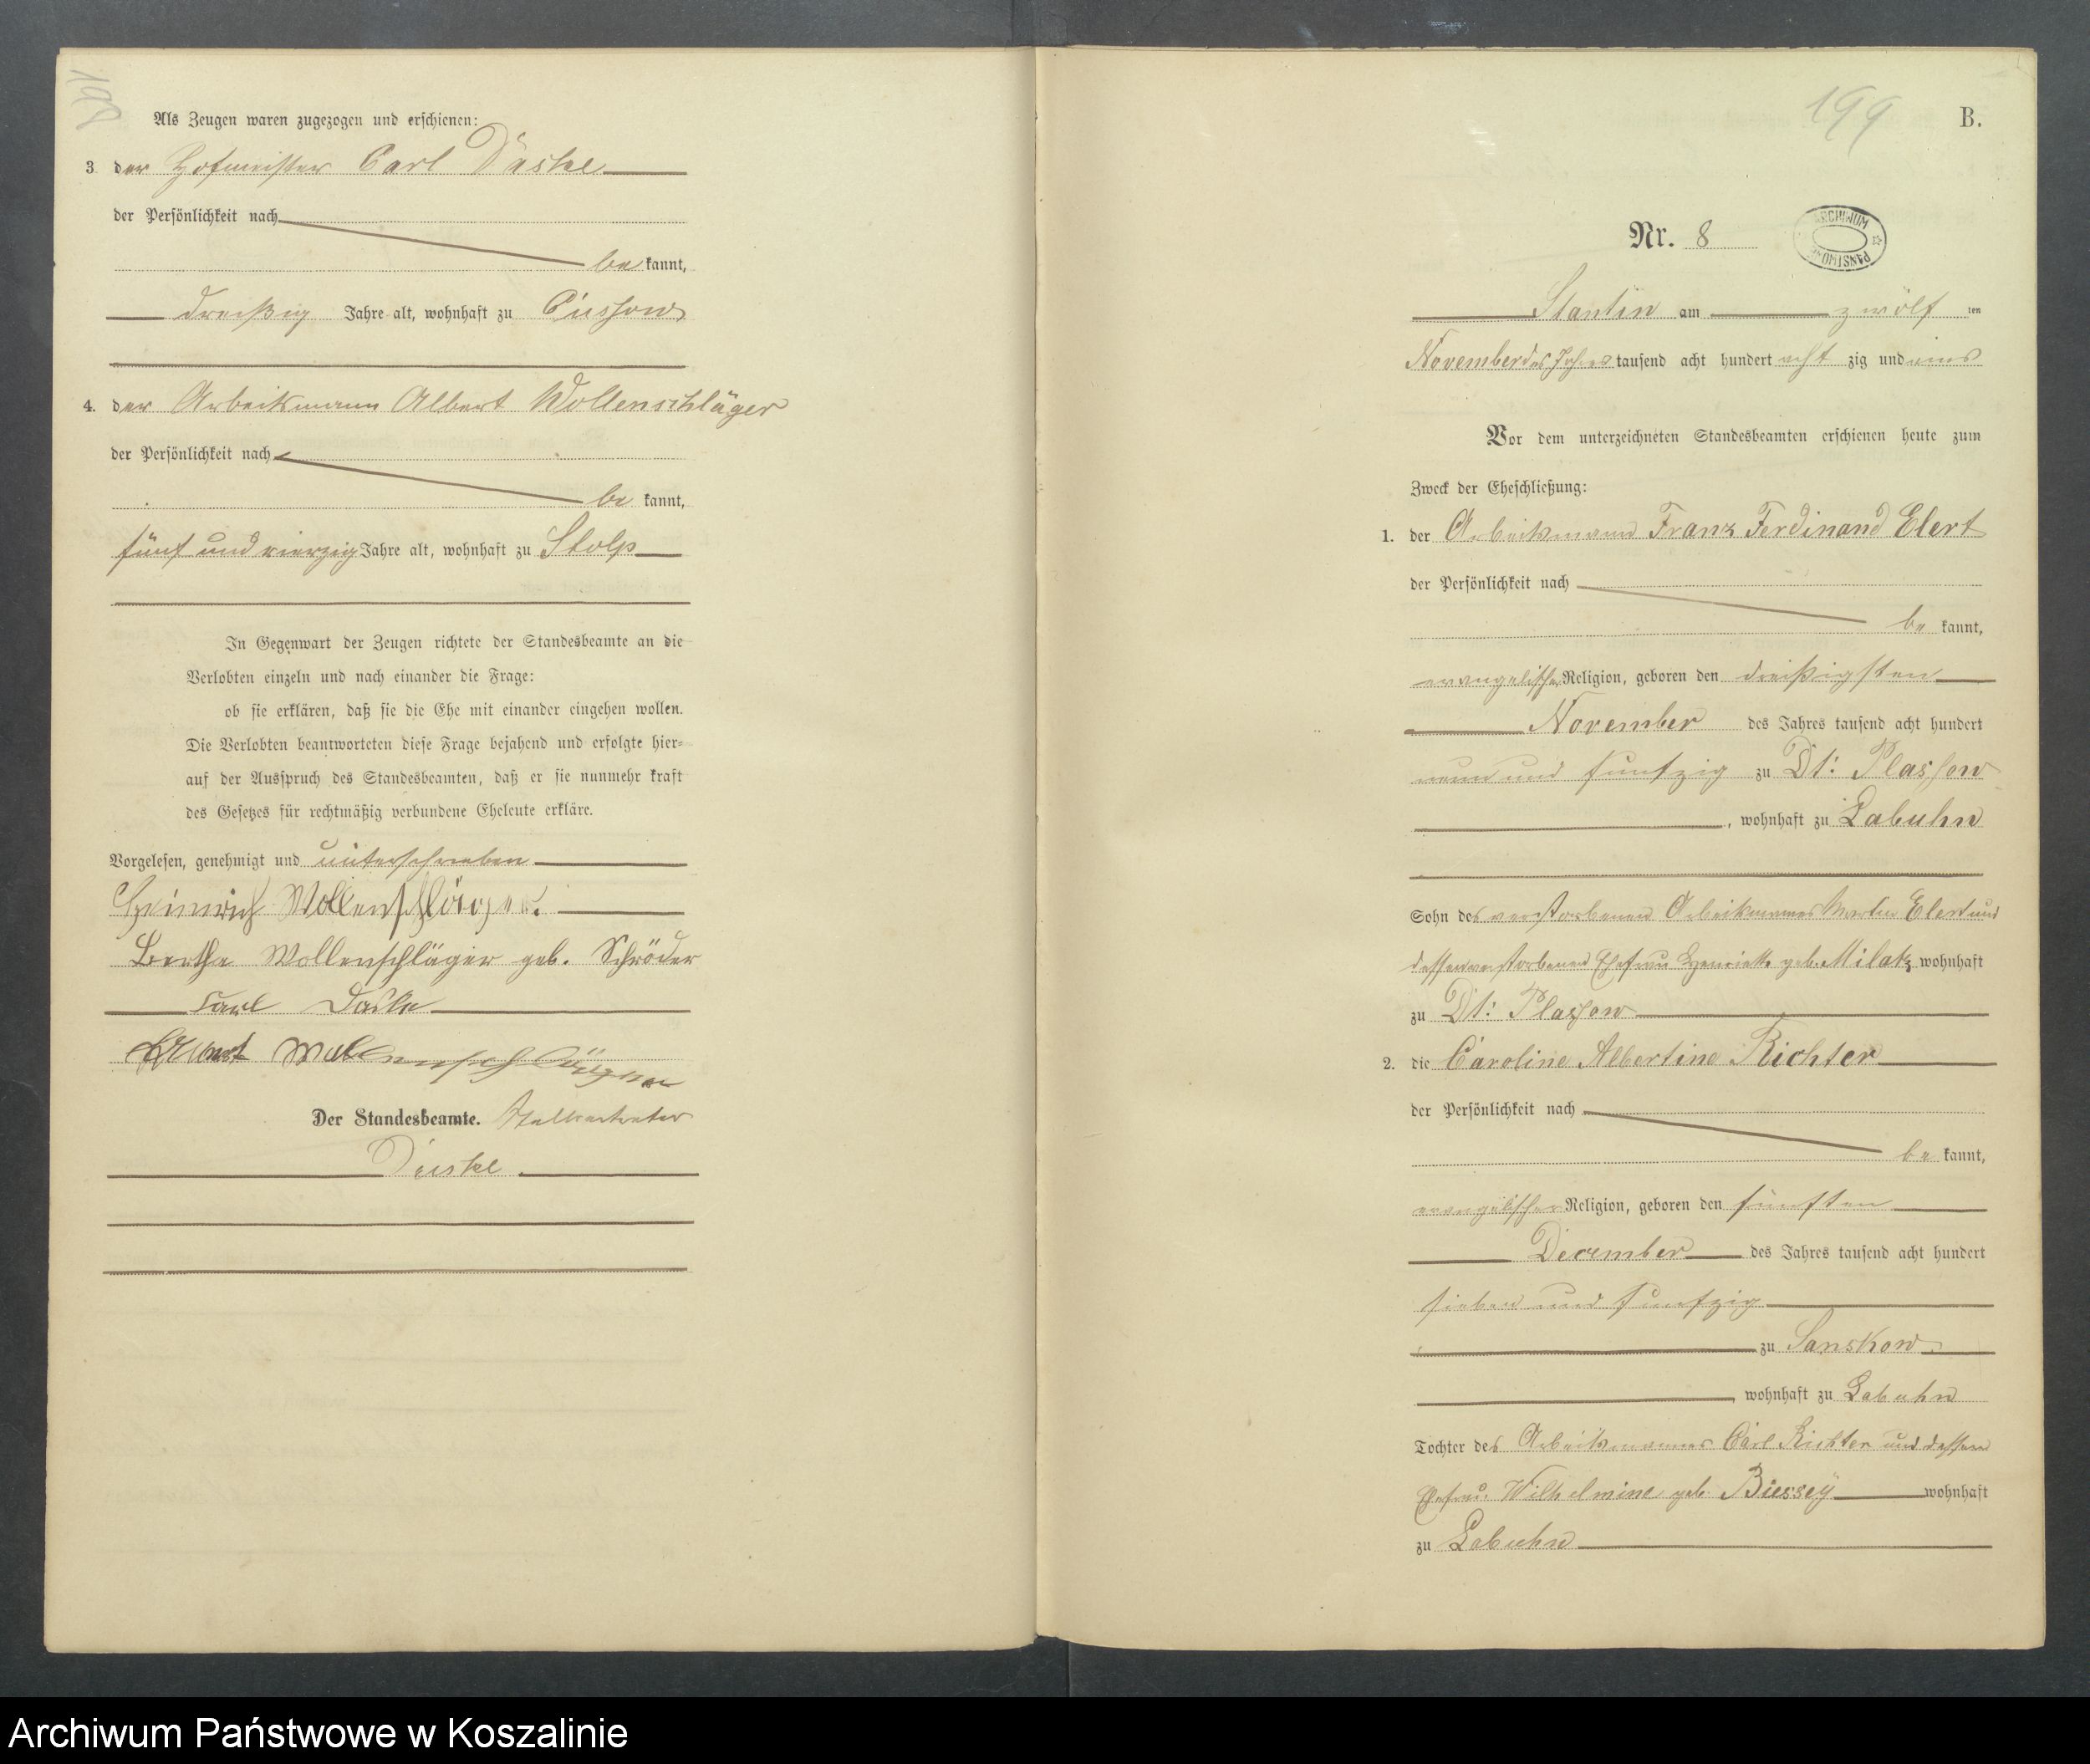 198
Als Zeugen waren zugezogen und erschienen:
3. der Hofmeister Carl Däske
der Persönlichkeit nach
be kannt,
dreißig Jahre alt, wohnhaft zu Cussow
4. der Arbeitsmann Albert Wollenschläger
der Persönlichkeit nach
be kannt,
fünf und vierzig Jahre alt, wohnhaft zu Stolp
In Gegenwart der Zeugen richtete der Standesbeamte an die
Verlobten einzeln und nach einander die Frage:
ob sie erklären, daß sie die Ehe mit einander eingehen wollen.
Die Verlobten beantworteten diese Frage bejahend und erfolgte hier-
auf der Ausspruch des Standesbeamten, daß er sie nunmehr kraft
des Gesetzes für rechtmäßig verbundene Eheleute erkläre.
Vorgelesen, genehmigt und unterschrieben
Heinrich Wollenschläger.
Berthe Wollenschläger geb. Schröder
Carl Daske
Albert Wollenschläger
Der Standesbeamte. Stellvertreter
Däske.
199
B.
Nr. 8
ARCHIWUM PAŃSTWOWE
Stantin am zwölf ten
November des Jahres tausend acht hundert acht zig und eins
Vor dem unterzeichneten Standesbeamten erschienen heute zum
Zweck der Eheschließung:
1. der Arbeitsmann Franz Ferdinand Elert
der Persönlichkeit nach
be kannt,
evangelischer Religion, geboren den dreißigsten
November des Jahres tausend acht hundert
neun und funfzig zu Dt: Plassow
, wohnhaft zu Labuhn
Sohn des verstorbenen Arbeitsmannes Martin Elert und
dessen verstorbenen Ehefrau Henriette geb. Milatz wohnhaft
zu Dt: Plassow
2. die Caroline Albertine Richter
der Persönlichkeit nach
be kannt,
evangelischer Religion, geboren den fünften
December des Jahres tausend acht hundert
sieben und funfzig
zu Sanskow
, wohnhaft zu Labuhn
Tochter des Arbeitsmannes Carl Richter und dessen
Ehefrau Wilhelmine geb. Biessey wohnhaft
zu Labuhn
Archiwum Państwowe w Koszalinie